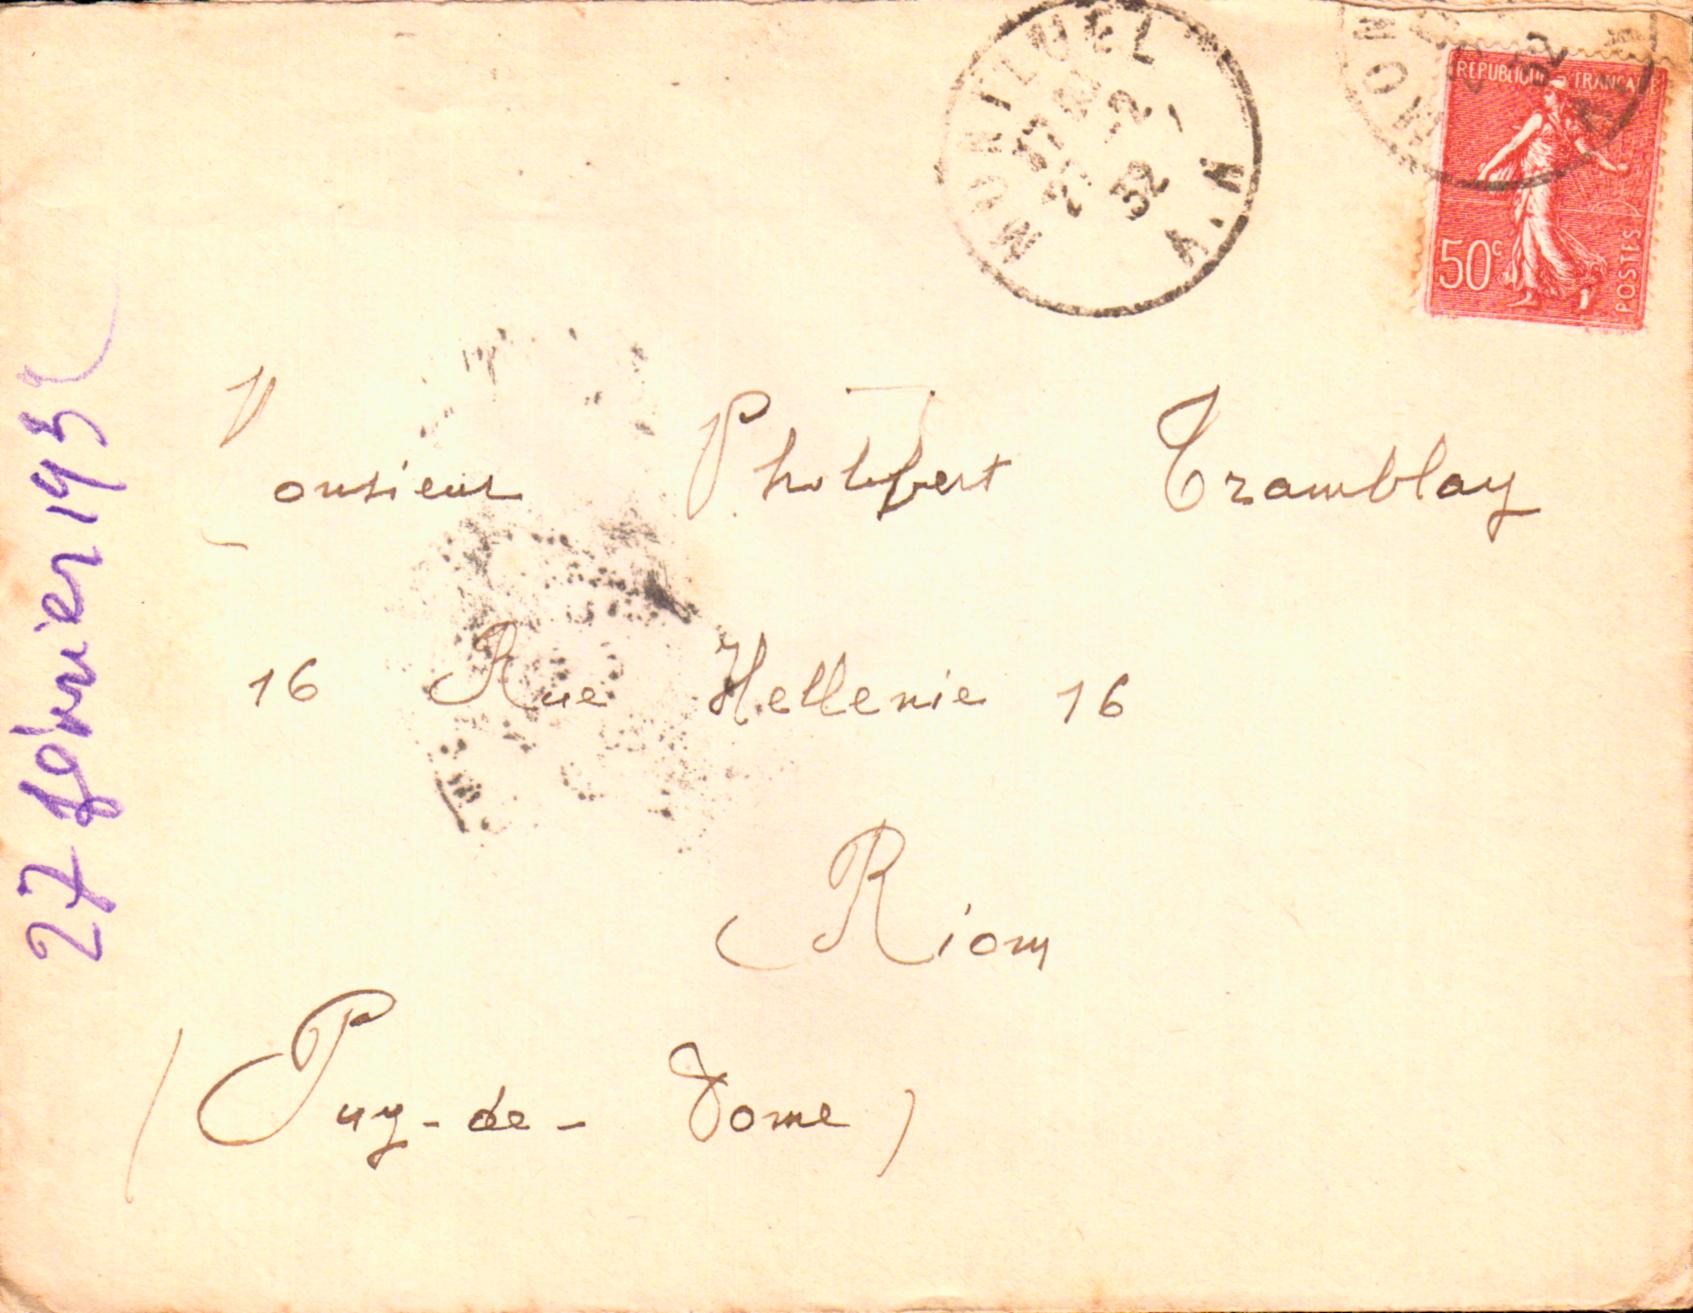 MONTLUEL
AIN
-2
32
REPUBLIQUE FRANÇAISE
50c
POSTES
27 février 1932
Monsieur Philibert Tramblay
16 Rue Hellenie 16
Riom
(Puy-de-Dome)